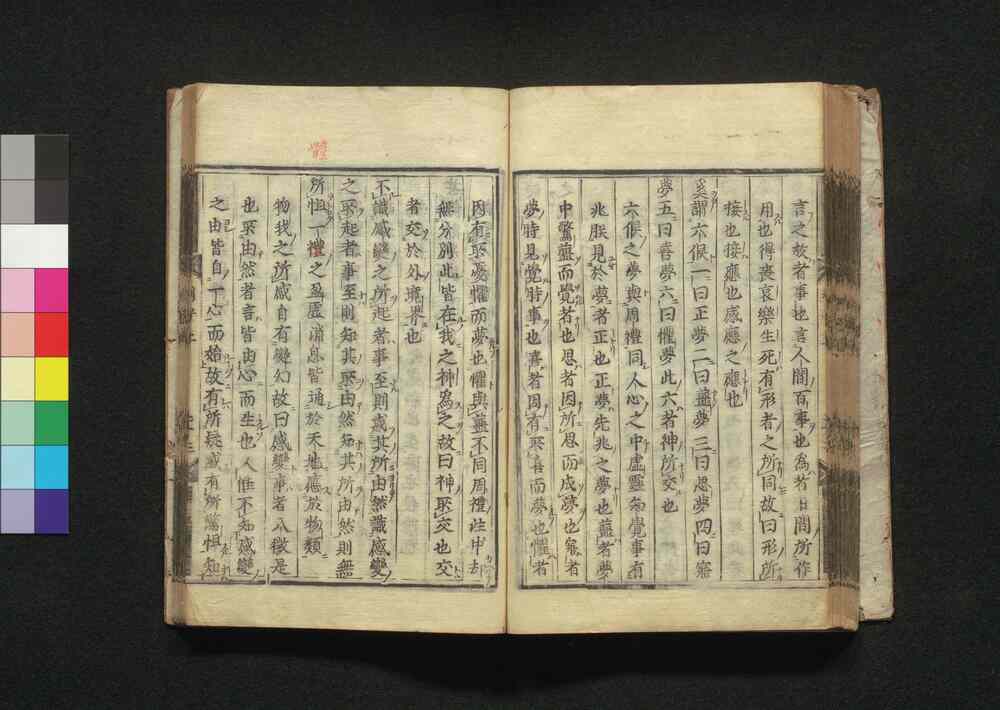 言之故者事也言人間百事也為者日間所作
用也得喪哀樂生死有形者之所同故曰形所
接也接應也感應之應也
奚謂六候一曰正夢二曰蘁夢三曰思夢四曰寤
夢五曰喜夢六曰懼夢此六者神所交也
六候之夢與周禮同人心之中虛靈知覺事有
兆朕見於夢者正也正夢先兆之夢也蘁者夢
中驚蘁而覺者也思者因所思而成夢也寤者
夢時見覺時事也喜者因有所喜而夢也懼者
因有所憂懼而夢也懼與蘁不同周禮註中却
欠分別此皆在我之神為之故曰神所交也交
者交於外境界也
不識感變之所起者事至則惑其所由然識感變
之所起者事至則知其所由然知其所由然則無
所怛一體之盈虛消息皆通於天地應於物類
物我之所感自有變幻故曰感變事者八徵是
也所由然者言皆由心而生也人惟不知感變
之由皆自一心而始故有所疑惑有所驚怛知
體